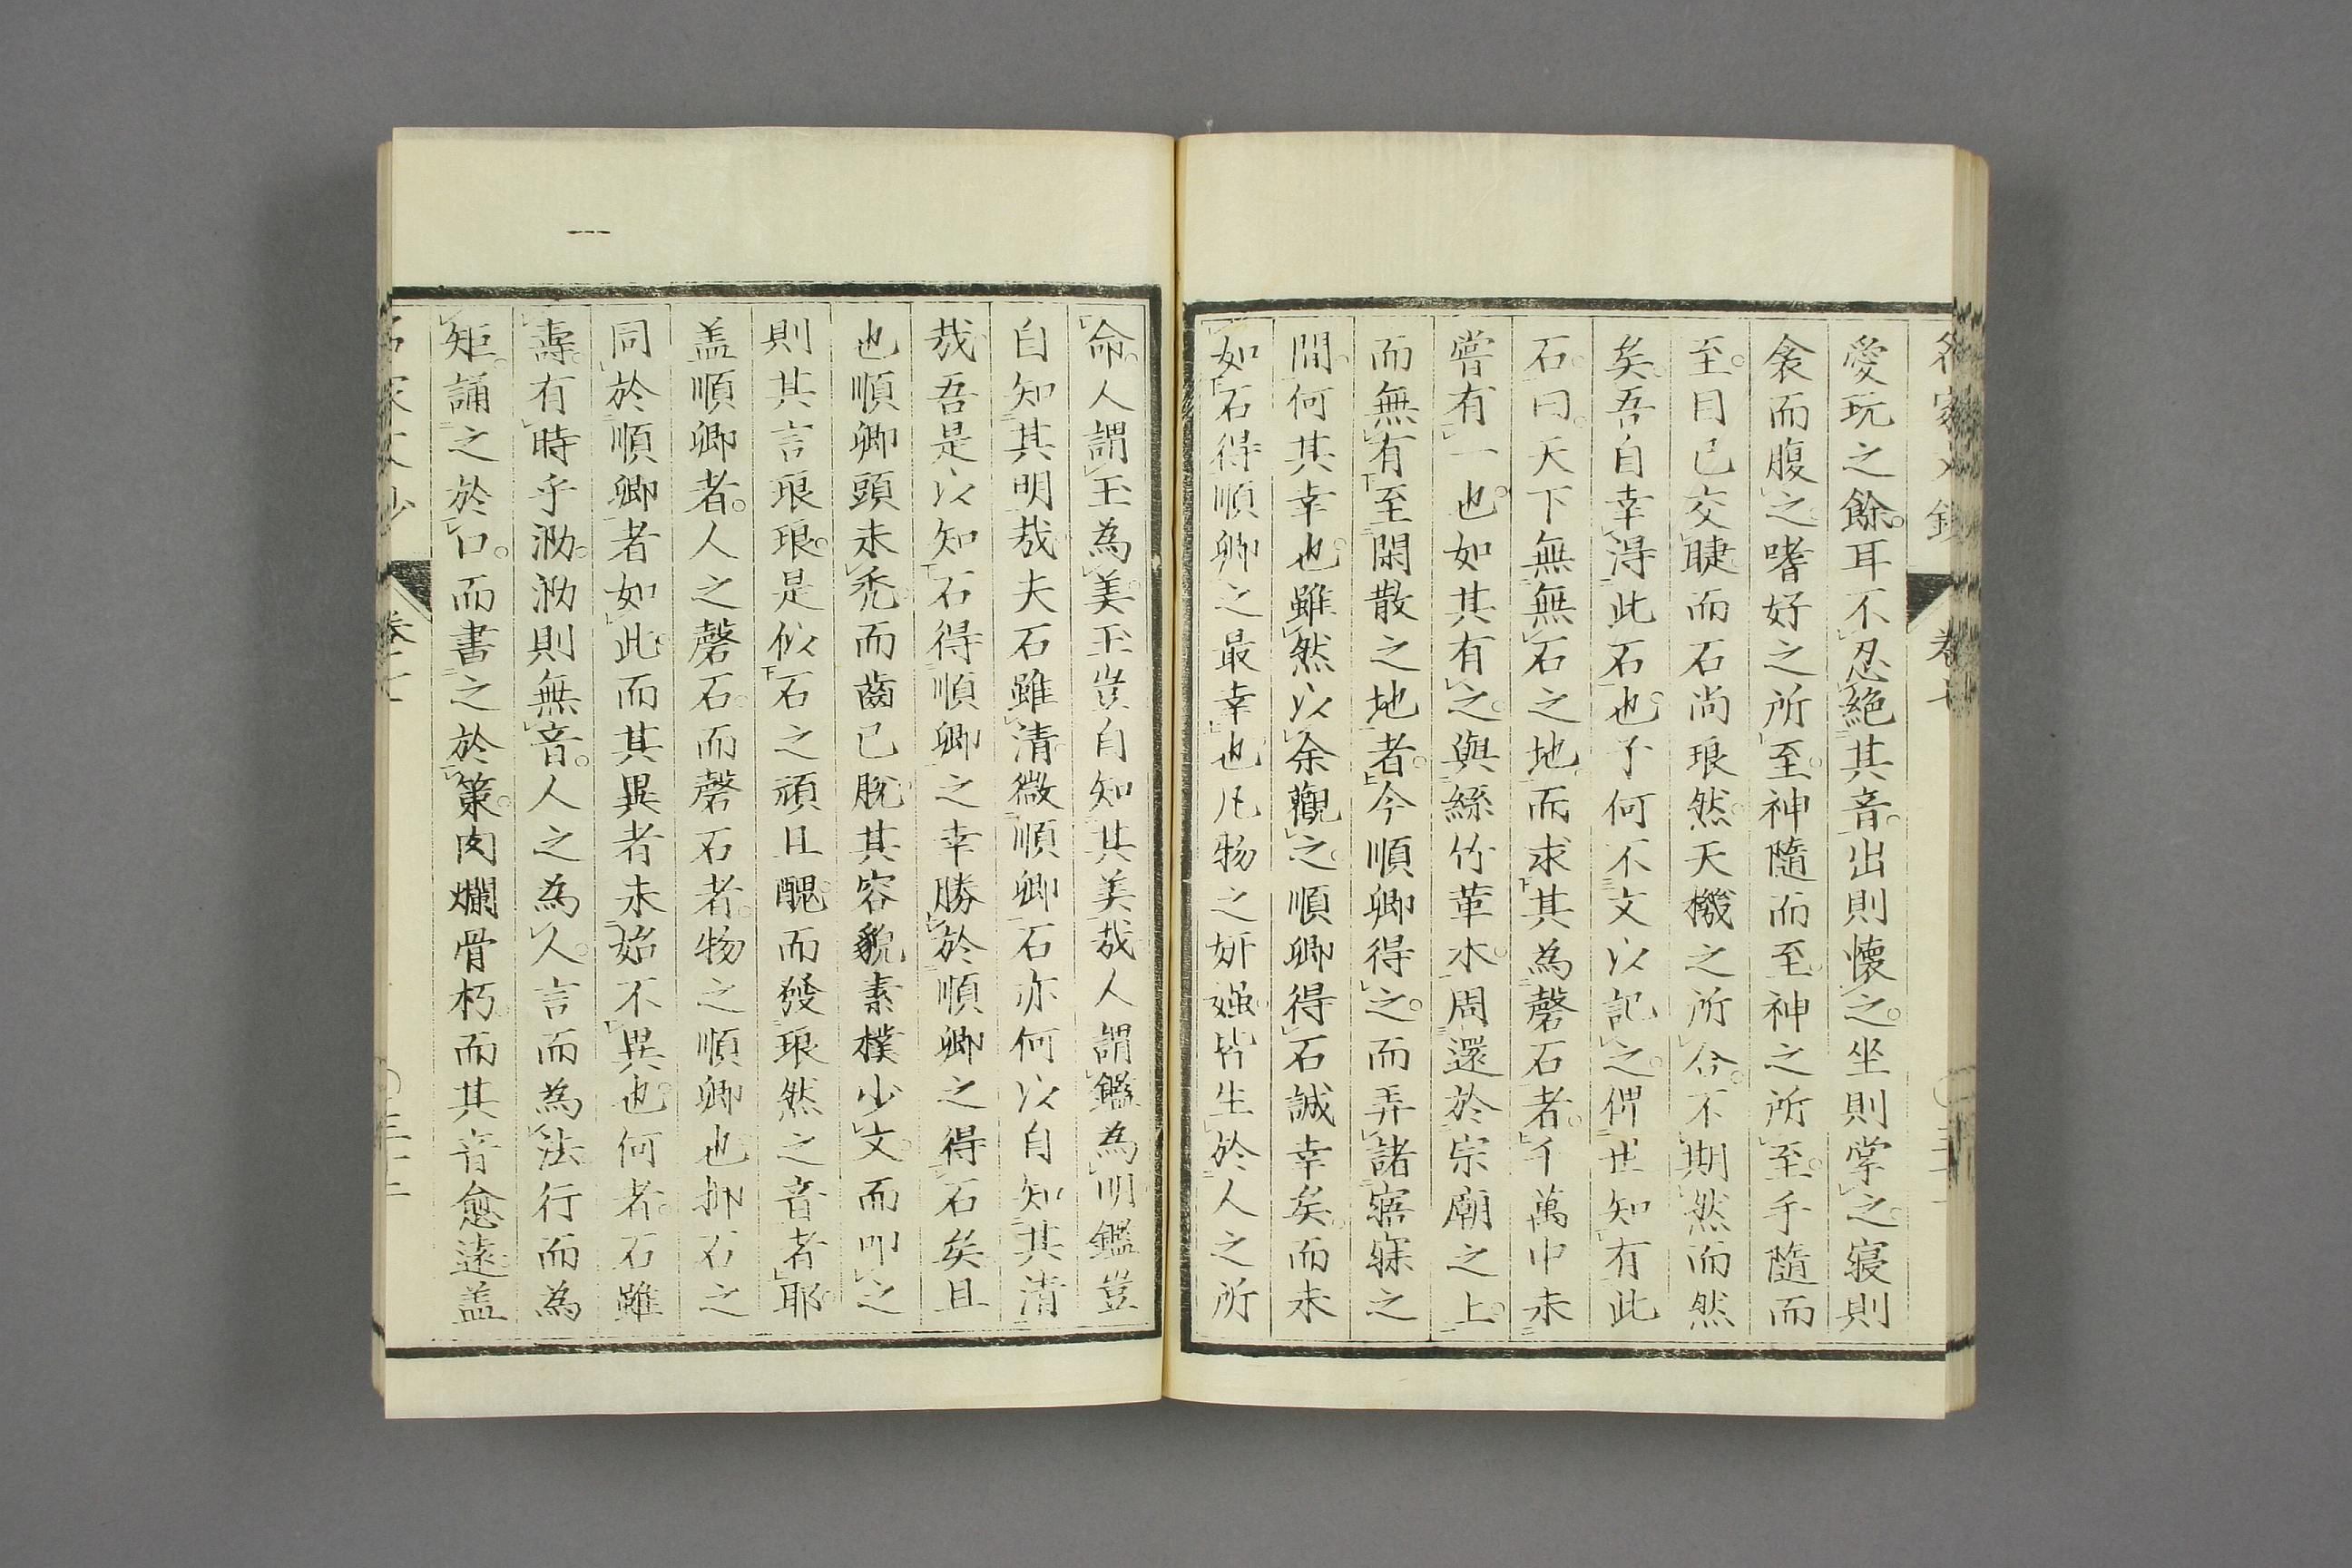 愛玩之餘。耳不忍絕其音。出則懷之。坐則掌之。寢則
衾而腹之。嗜好之所至。神隨而至。神之所至。手隨而
至。目已交睫。而石尚琅然。天機之所合。不期然而然
矣。吾自幸得此石也。予何不文以記之。俾世知有此
石。曰。天下無無石之地。而求其為磬石者。千萬中未
嘗有一也。如其有之。與絲竹革木。周還於宗廟之上。
而無有至閑散之地者。今順卿得之。而弄諸寤寐之
間。何其幸也。雖然以余觀之。順卿得石誠幸矣。而未
如石得順卿之最幸也。凡物之妍媸。皆生於人之所
命。人謂玉為美。玉豈自知其美哉。人謂鑑為明。鑑豈
自知其明哉。夫石雖清。微順卿石亦何以自知其清
哉。吾是以知石得順卿之幸。勝於順卿之得石矣。且
也順卿頭未禿。而齒已脫。其容貌素樸少文。而叩之
則其言琅琅。是似石之頑且醜。而發琅然之音者耶。
盖順卿者。人之磬石。而磬石者。物之順卿也。抑石之
同於順卿者如此。而其異者未始不異也。何者。石雖
壽。有時乎泐。泐則無音。人之為人。言而為法。行而為
矩。誦之於口。而書之於策。肉爛骨朽。而其音愈遠。盖
卷十